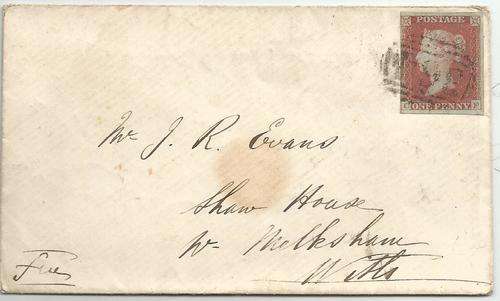 POSTAGE
ONE PENNY
Mr J. R. Evans
Shaw House
Nr Melksham
Wilts